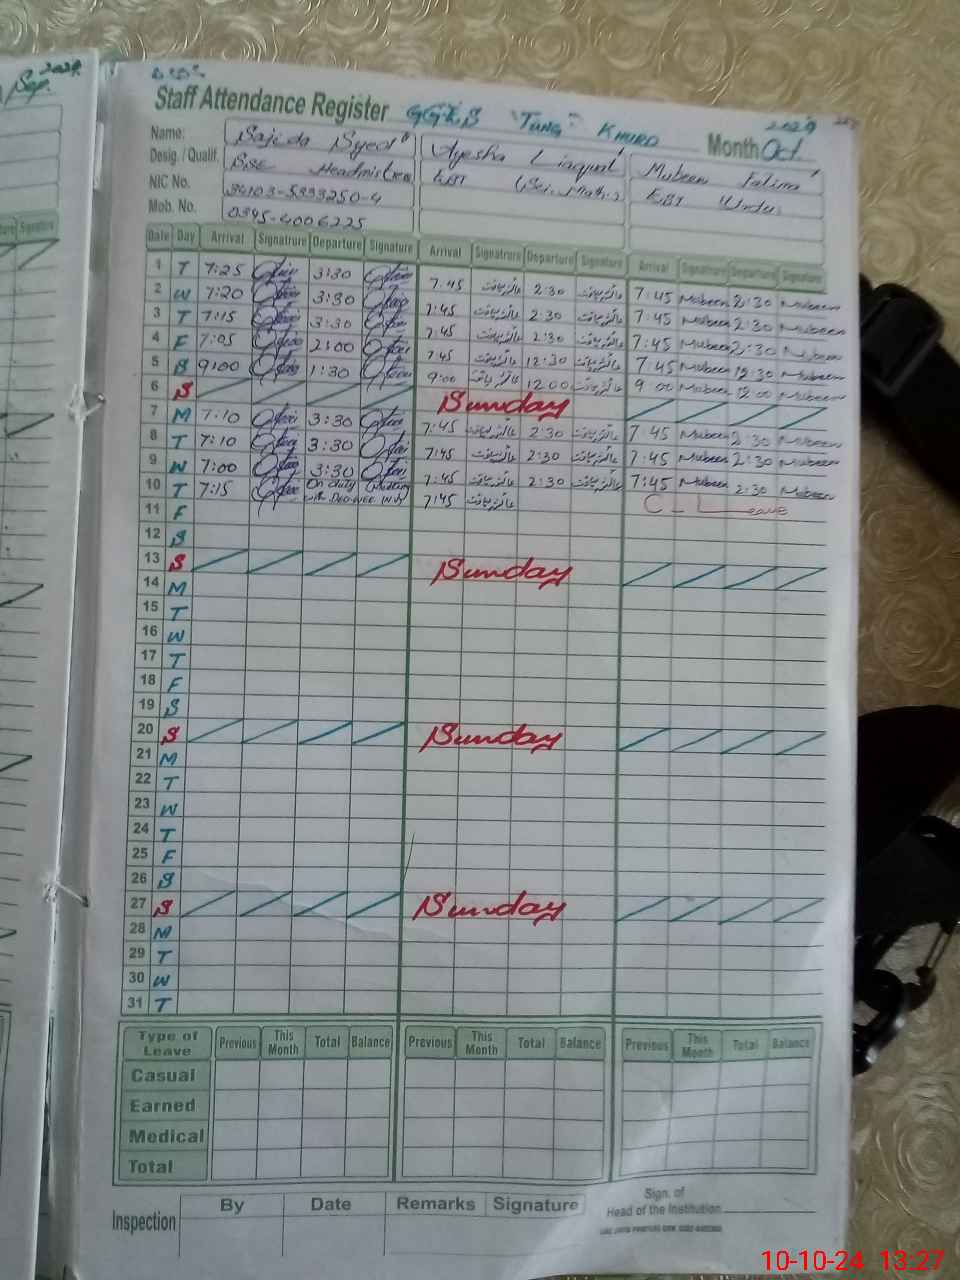 Sep. 2024
Staff Attendance Register GGES "Tung" Khurd Month Oct 2024
Name: Sajida Syed Ayesha Liaquat Mubeen Fatima
Desig. / Qualif. SSE Headmistress ESE (Sci. Math.) ESE Urdu
NIC No.
Mob. No. 0345-4006225
Date Day Arrival Signatrure Departure Signature Arrival Signatrure Departure Signature Arrival Signatrure Departure Signature
1 T 7:25 3:30 7:45 2:30 7:45 Mubeen 2:30 Mubeen
2 W 7:20 3:30 7:45 2:30 7:45 Mubeen 2:30 Mubeen
3 T 7:15 3:30 7:45 2:30 7:45 Mubeen 2:30 Mubeen
4 F 7:05 2:00 7:45 12:30 7:45 Mubeen 12:30 Mubeen
5 S 9:00 1:30 9:00 12:00 9:00 Mubeen 12:00 Mubeen
6 S Sunday
7 M 7:10 3:30 7:45 2:30 7:45 Mubeen 2:30 Mubeen
8 T 7:10 3:30 7:45 2:30 7:45 Mubeen 2:30 Mubeen
9 W 7:00 3:30 7:45 2:30 7:45 Mubeen 2:30 Mubeen
10 T 7:15 On duty 7:45 C_Leave
11 F
12 S
13 S Sunday
14 M
15 T
16 W
17 T
18 F
19 S
20 S Sunday
21 M
22 T
23 W
24 T
25 F
26 S
27 S Sunday
28 M
29 T
30 W
31 T
Type of Leave Previous This Month Total Balance Previous This Month Total Balance Previous This Month Total Balance
Casual
Earned
Medical
Total
Inspection By Date Remarks Signature
Sign. of
Head of the Institution
10-10-24 13:27